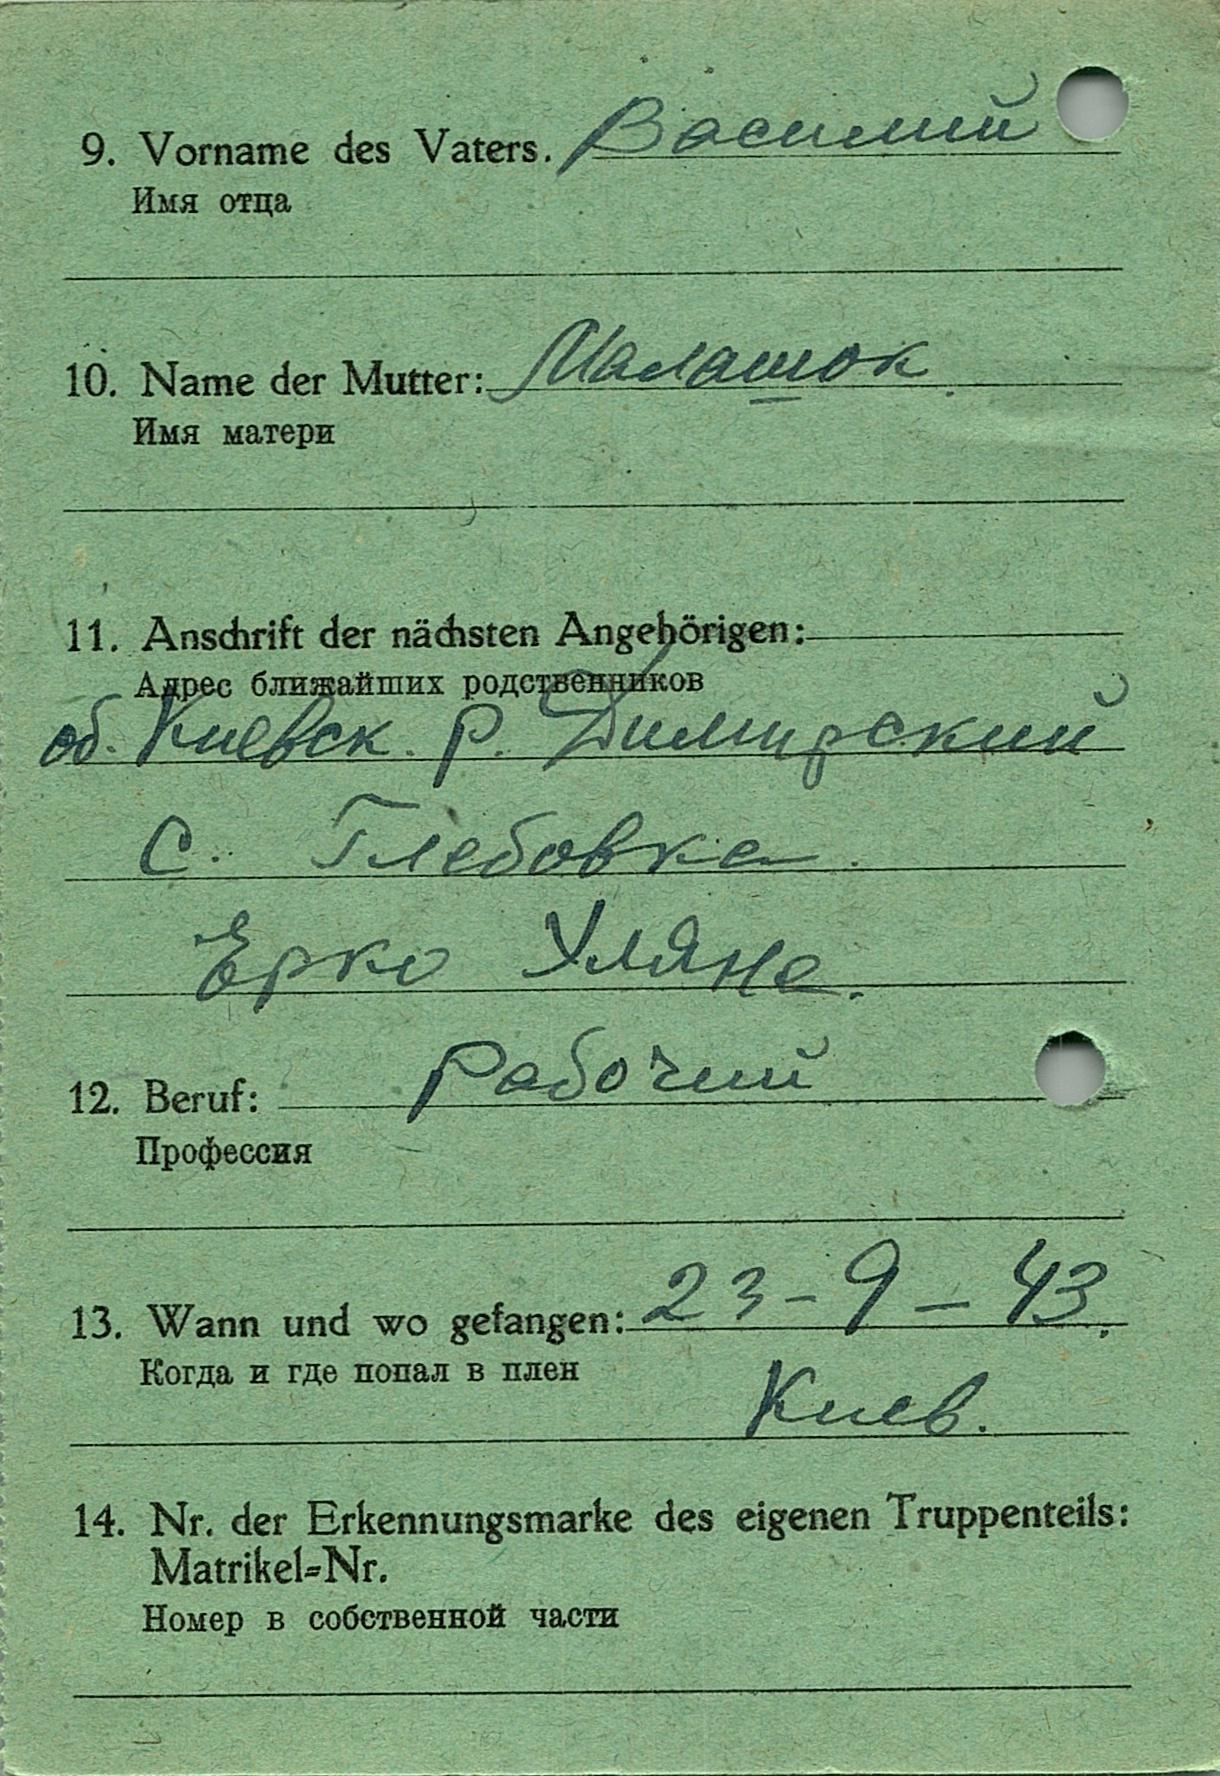 9. Vorname des Vaters. Василий
Имя отца
10. Name der Mutter: Малашок
Имя матери
11. Anschrift der nächsten Angehörigen:
Адрес ближайших родственников
об. Киевск. р. Димирский
с. Глебовка
Ерко Уляна.
12. Beruf: Рабочий
Профессия
13. Wann und wo gefangen: 23-9-43.
Когда и где попал в плен
Киев.
14. Nr. der Erkennungsmarke des eigenen Truppenteils:
Matrikel=Nr.
Номер в собственной части